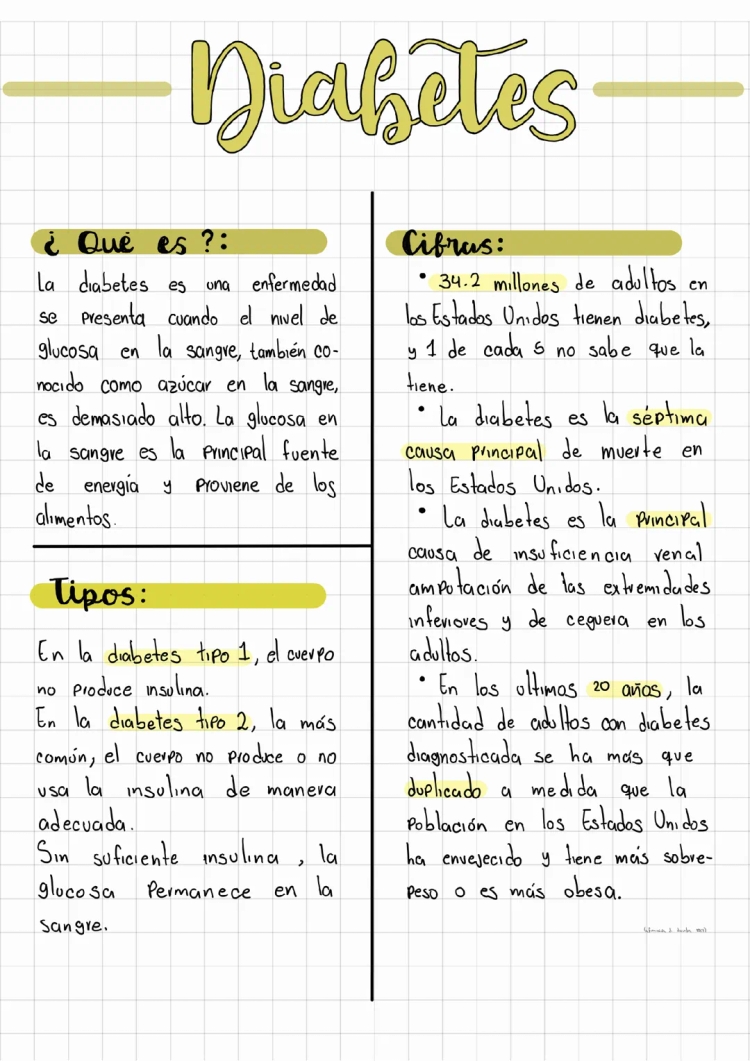 Diabetes
¿ Qué es ?:
La diabetes es una enfermedad
se presenta cuando el nivel de
glucosa en la sangre, también co-
nocido como azúcar en la sangre,
es demasiado alto. La glucosa en
la sangre es la principal fuente
de energía y proviene de los
alimentos.
Tipos:
En la diabetes tipo 1, el cuerpo
no produce insulina.
En la diabetes tipo 2, la más
común, el cuerpo no produce o no
usa la insulina de manera
adecuada.
Sin suficiente insulina, la
glucosa permanece en la
sangre.
Cifras:
• 34.2 millones de adultos en
los Estados Unidos tienen diabetes,
y 1 de cada 5 no sabe que la
tiene.
• La diabetes es la séptima
causa principal de muerte en
los Estados Unidos.
• La diabetes es la principal
causa de insuficiencia renal
amputación de las extremidades
inferiores y de ceguera en los
adultos.
• En los ultimos 20 años, la
cantidad de adultos con diabetes
diagnosticada se ha más que
duplicado a medida que la
población en los Estados Unidos
ha envejecido y tiene más sobre-
peso o es más obesa.